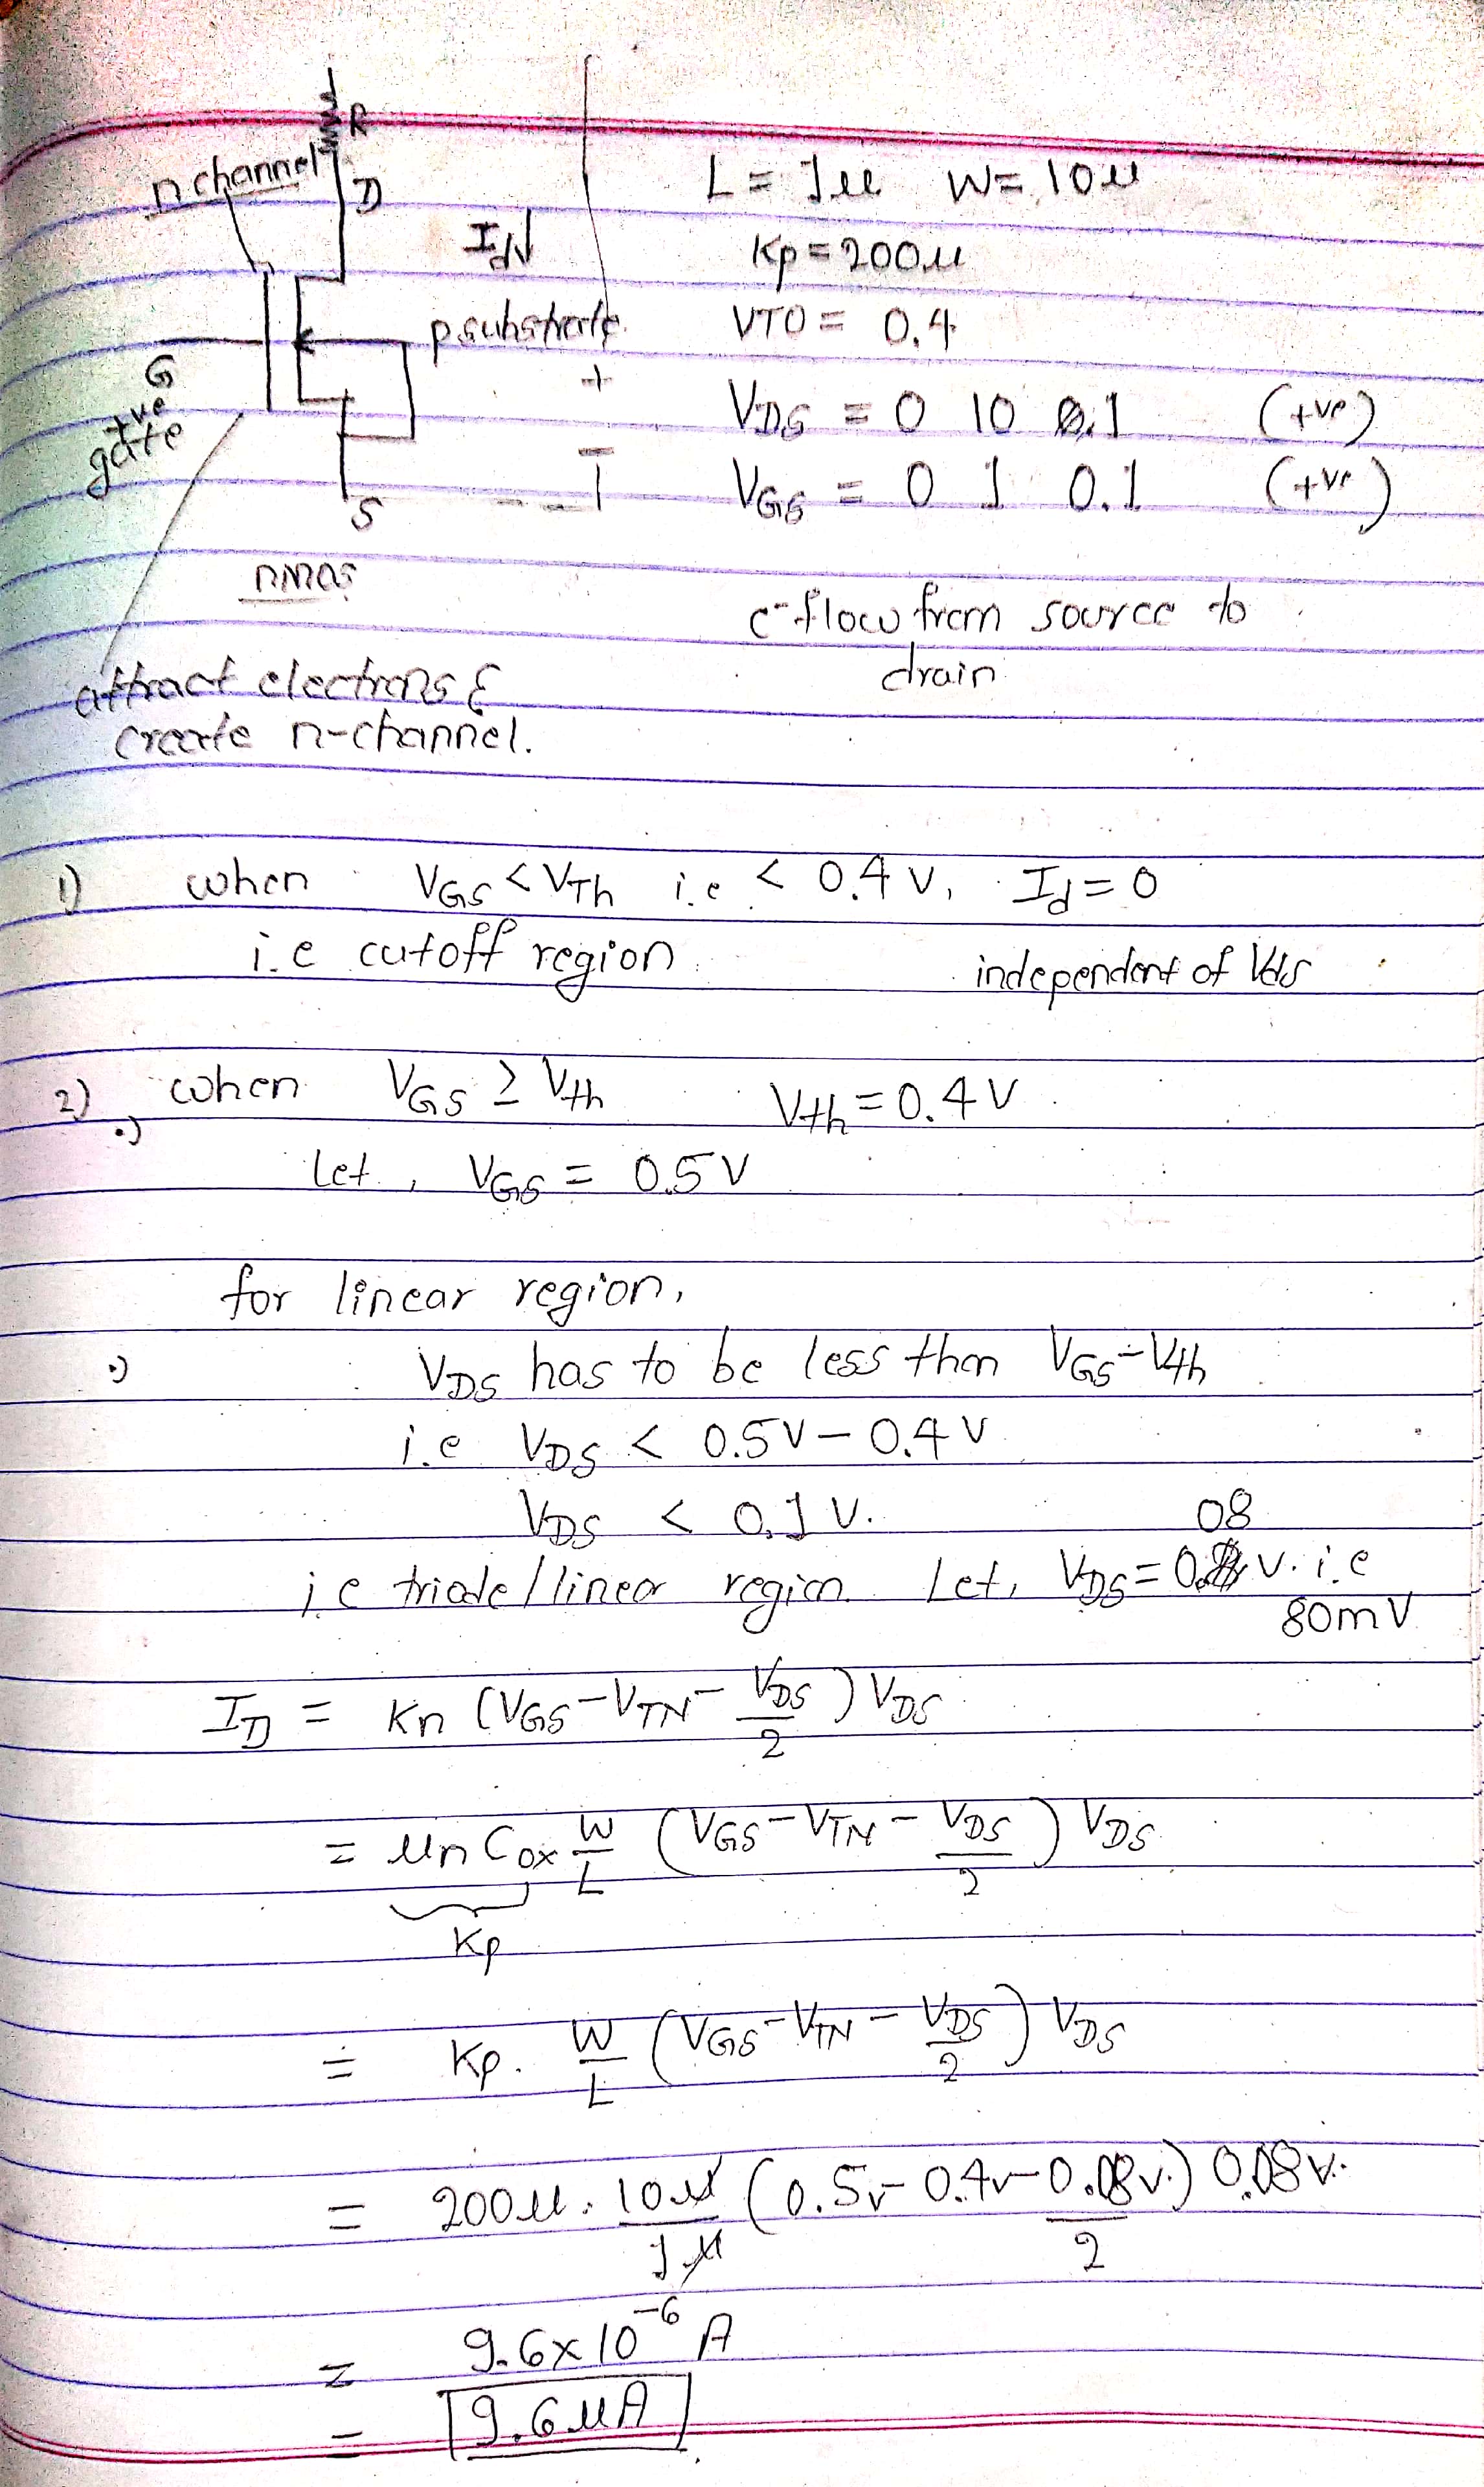 R
n channel
D
Id↓
p substrate
G
+ve
gate
S
+
-
nmos
attract electrons &
create n-channel.
L = 1u W = 10u
Kp = 200u
VTO = 0.4
VDS = 0 10 0.1 (+ve)
VGS = 0 1 0.1 (+ve)
e- flow from source to
drain
1) when VGS < VTh i.e < 0.4 V, Id = 0
i.e cutoff region independent of Vds
2) when VGS ≥ Vth Vth = 0.4 V
•) Let, VGS = 0.5 V
for linear region,
•) VDS has to be less than VGS - Vth
i.e VDS < 0.5V - 0.4 V
VDS < 0.1 V.
i.e triode/linear region Let, VDS = 0.08 V. i.e
80mV
ID = Kn (VGS - VTN - VDS/2) VDS
= μn Cox W/L (VGS - VTN - VDS/2) VDS
Kp
= Kp. W/L (VGS - VTN - VDS/2) VDS
= 200u . 10u/1u (0.5v - 0.4v - 0.08v/2) 0.08v.
= 9.6 x 10^-6 A
= 9.6 uA